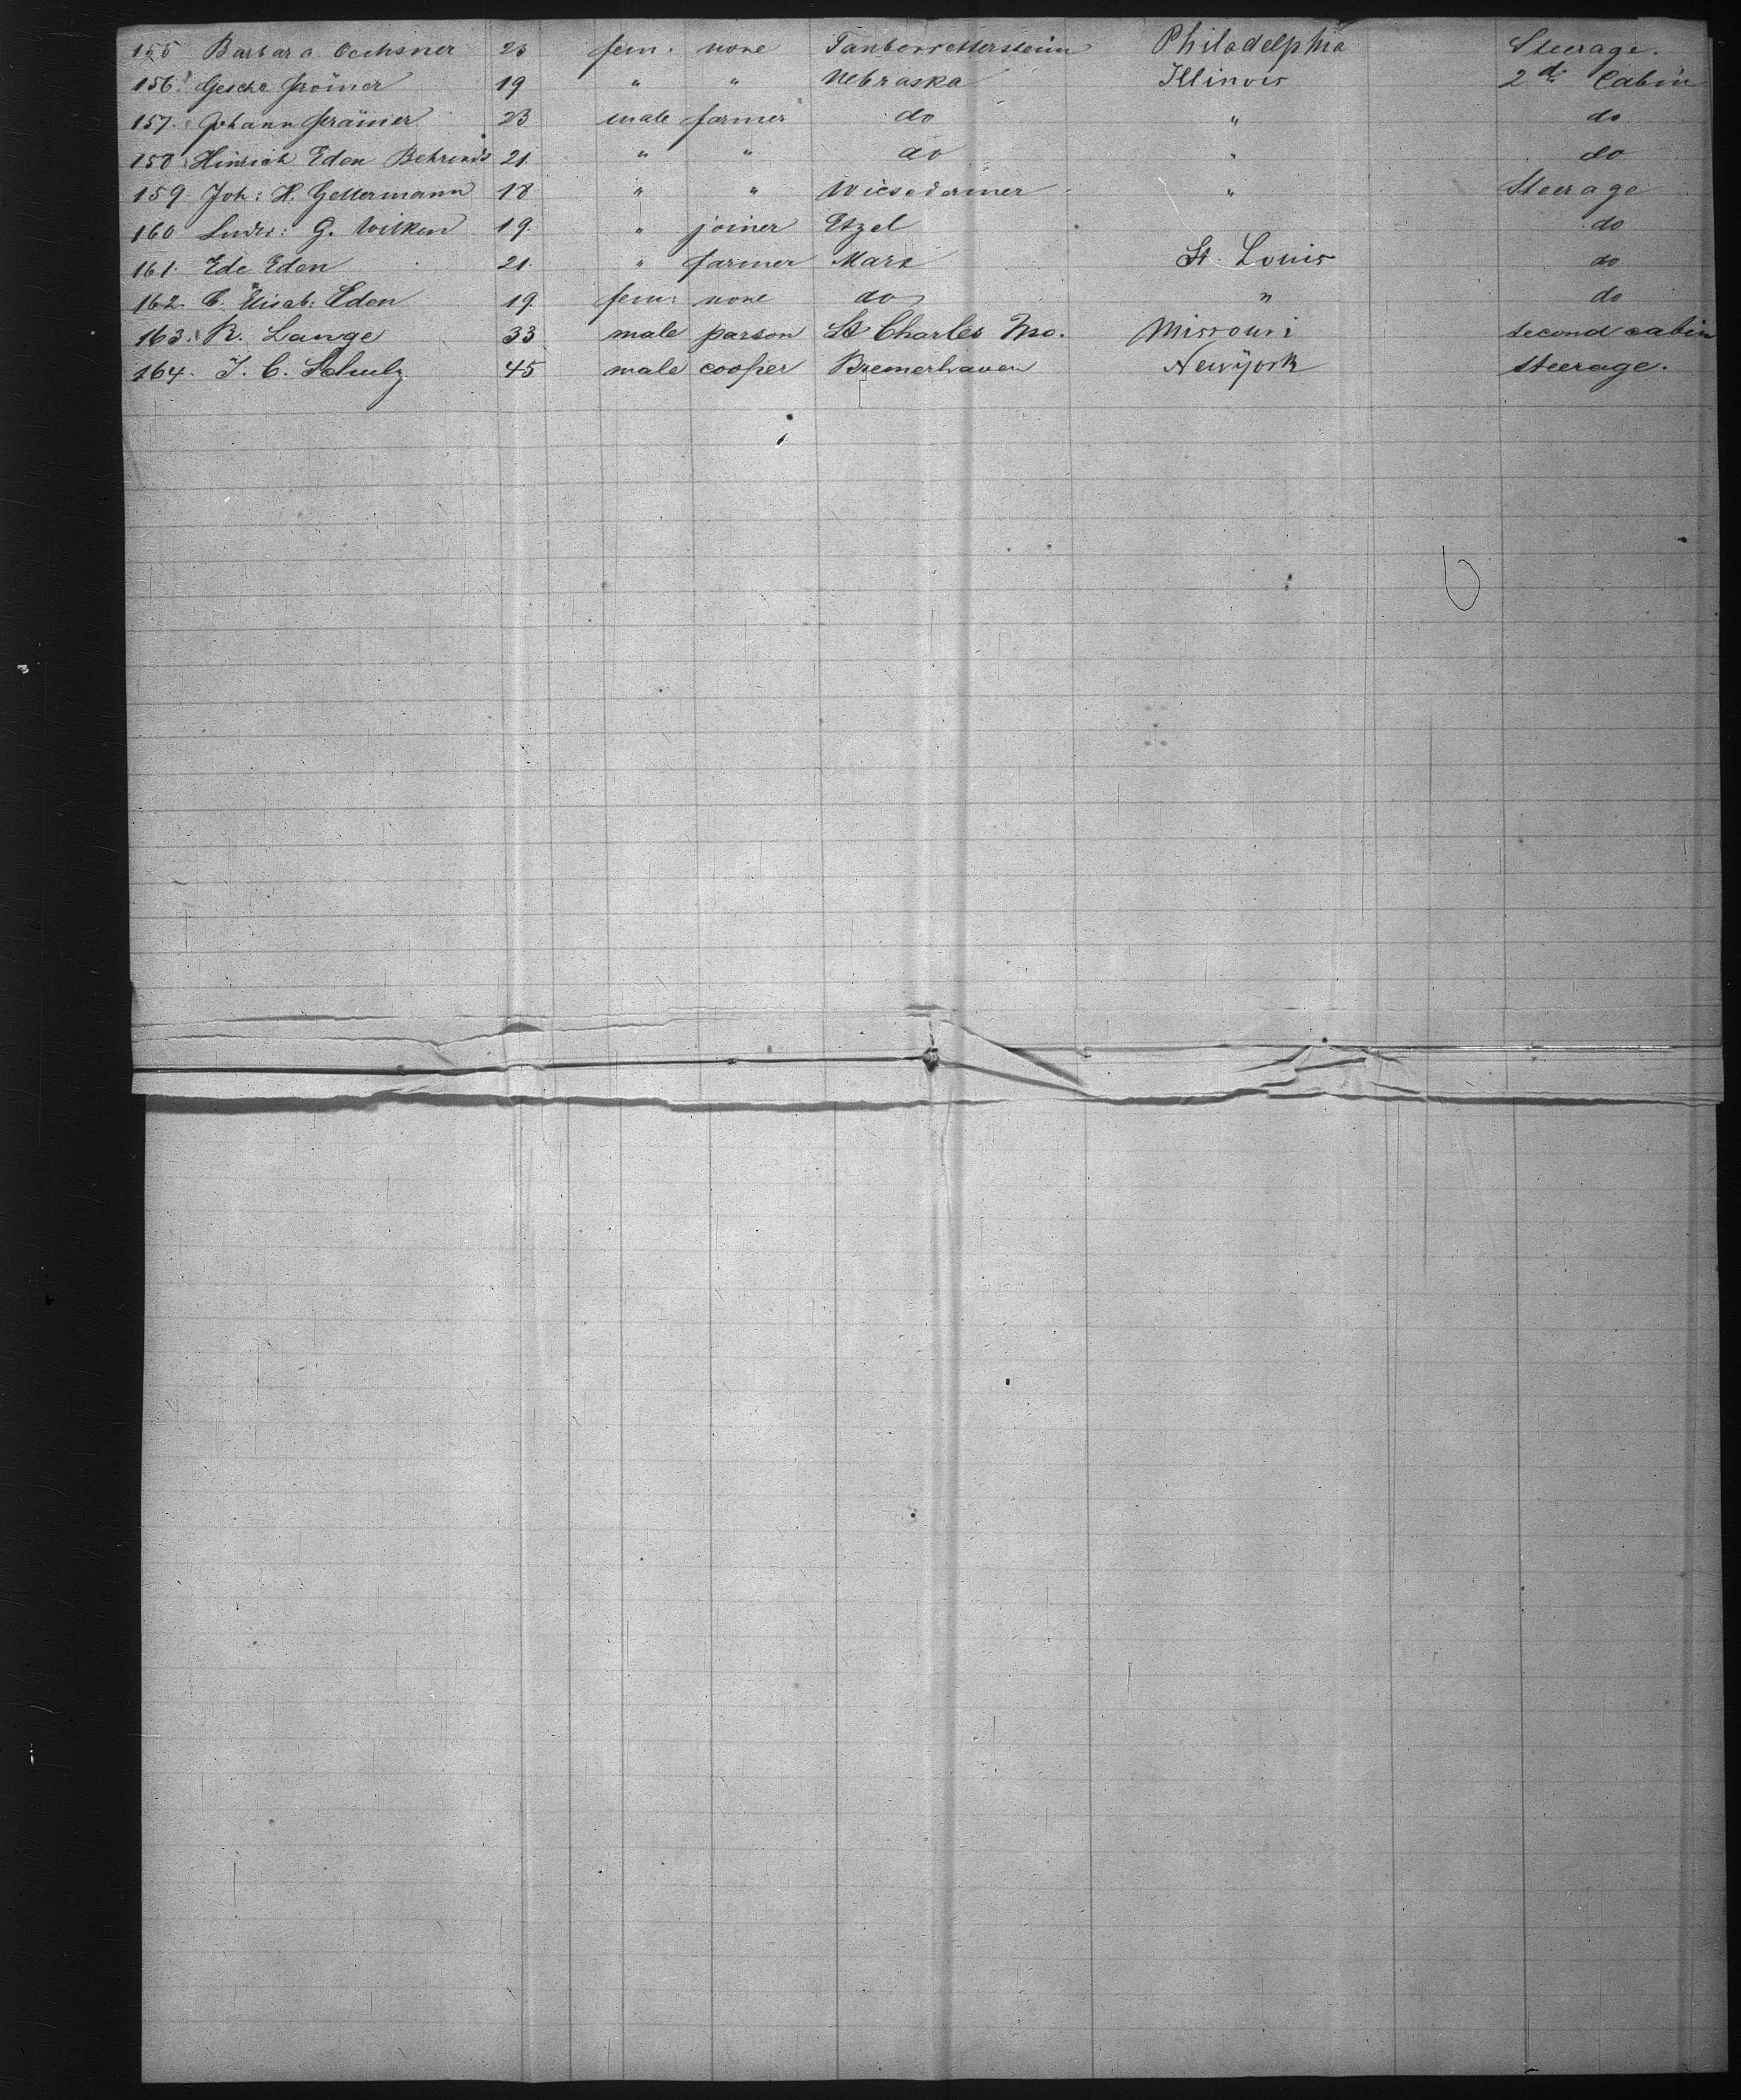 155 Barbara Oechsner 23 fem. none Philadelphia Steerage.
156. Gesche 19 " " Nebraska Illinois 2d Cabin
157. Johann 23 male farmer do " do
158 Hinrich Eden Behrends 21. " " do " do
159. Joh: H. Gellermann 18 " " Wiesedermer " Steerage
160 Ludw: G. Wilken 19. " joiner Etzel do
161. Ede Eden 21. " farmer Marx St. Louis do
162. C. Elisab: Eden 19. fem: none do " do
163. R. Lange 33 male parson St Charles Mo. Missouri second cabin
164. J. C. Schulz 45 male cooper Bremerhaven Newyork steerage.